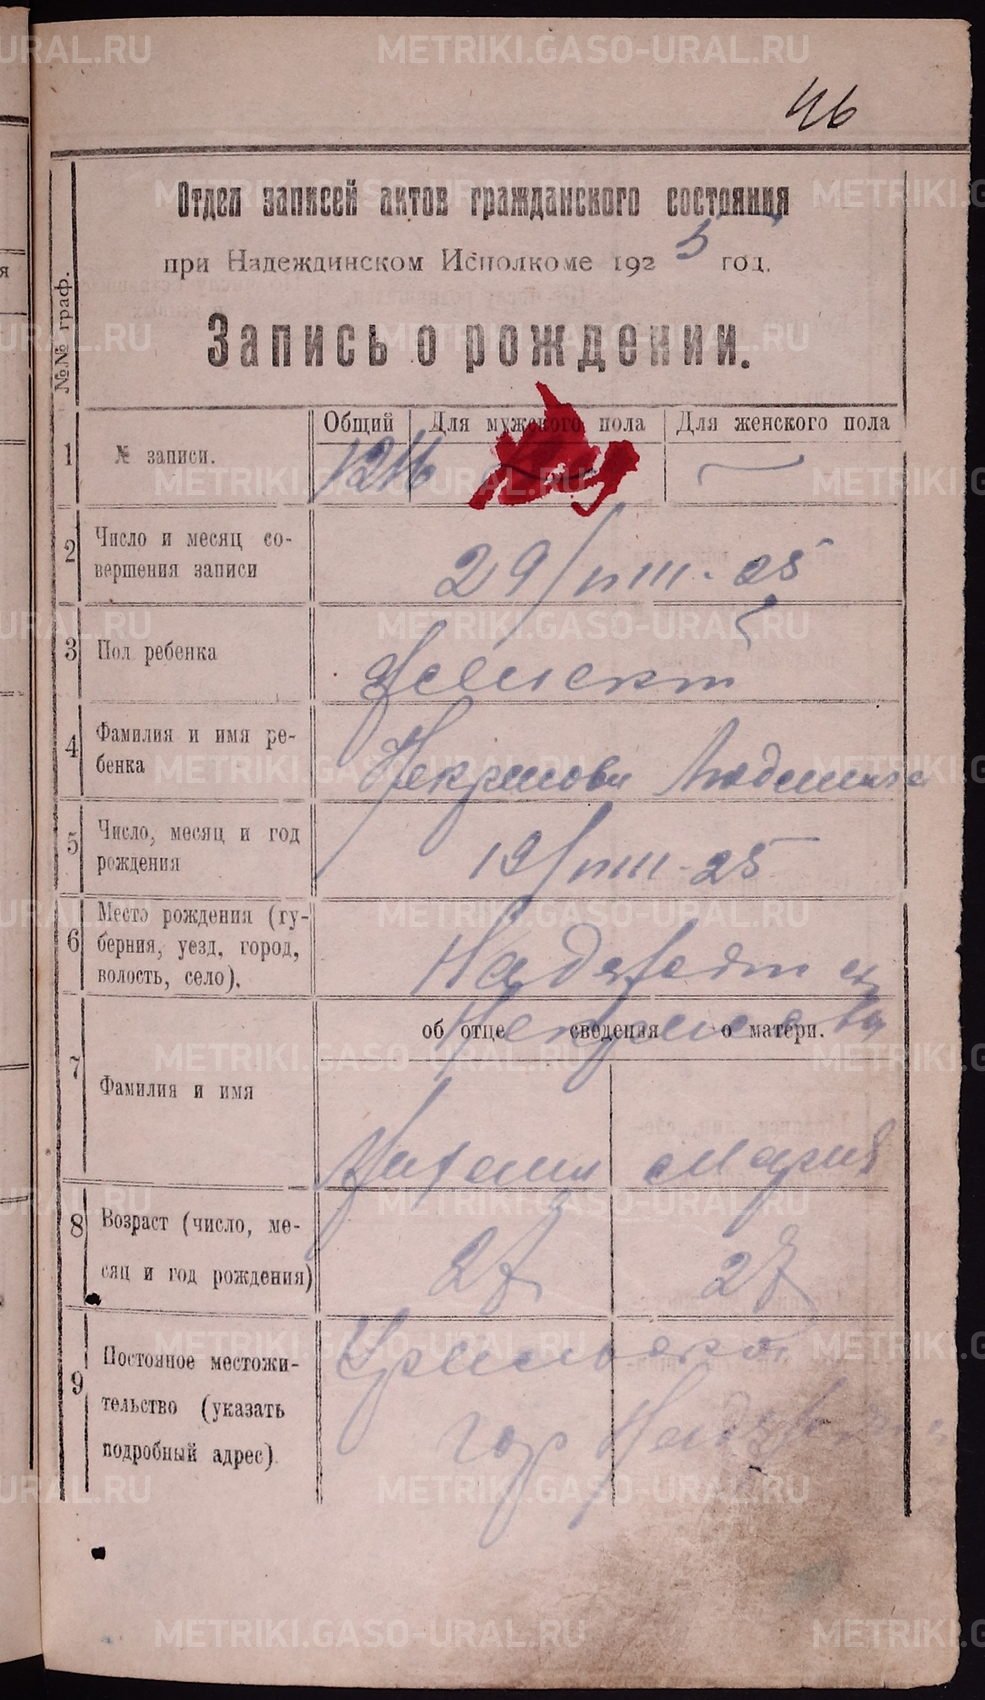 46
Отдел записей актов гражданского состояния
при Надеждинском Исполкоме 1925 год.
Запись о рождении.
№№ граф.
Общий Для мужского пола Для женского пола
1 № записи. 1216 —
2 Число и месяц со-
вершения записи 29/VIII-25
3 Пол ребенка Женский
4 Фамилия и имя ре-
бенка Некрасова
5 Число, месяц и год
рождения 19/VIII-25
6 Место рождения (гу-
берния, уезд, город,
волость, село).
об отце сведения о матери.
7 Фамилия и имя
Мария
8 Возраст (число, ме-
сяц и год рождения) 27 27
9 Постояное местожи-
тельство (указать
подробный адрес). гор
METRIKI.GASO-URAL.RU